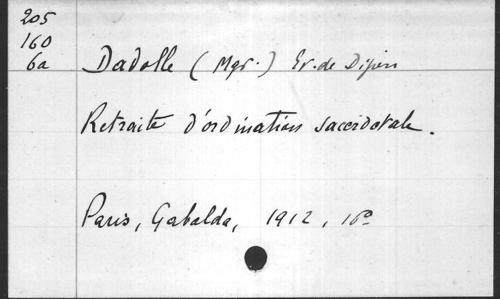 205
160
6a
Dadolle (Mgr.) Ev. de Dijon
Retraite d'ordination sacerdotale.
Paris, Gabalda, 1912, 16°